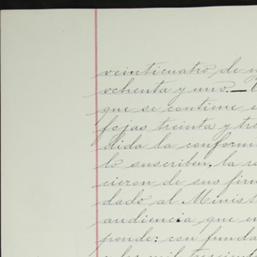 veinticuatro de
ochenta y uno.—
que se contiene
fojas treinta y tre
dida la conform
lo suscriben, la ra
cieron de sus fir
dado al Minist
audiencia que en
ponde; con funda